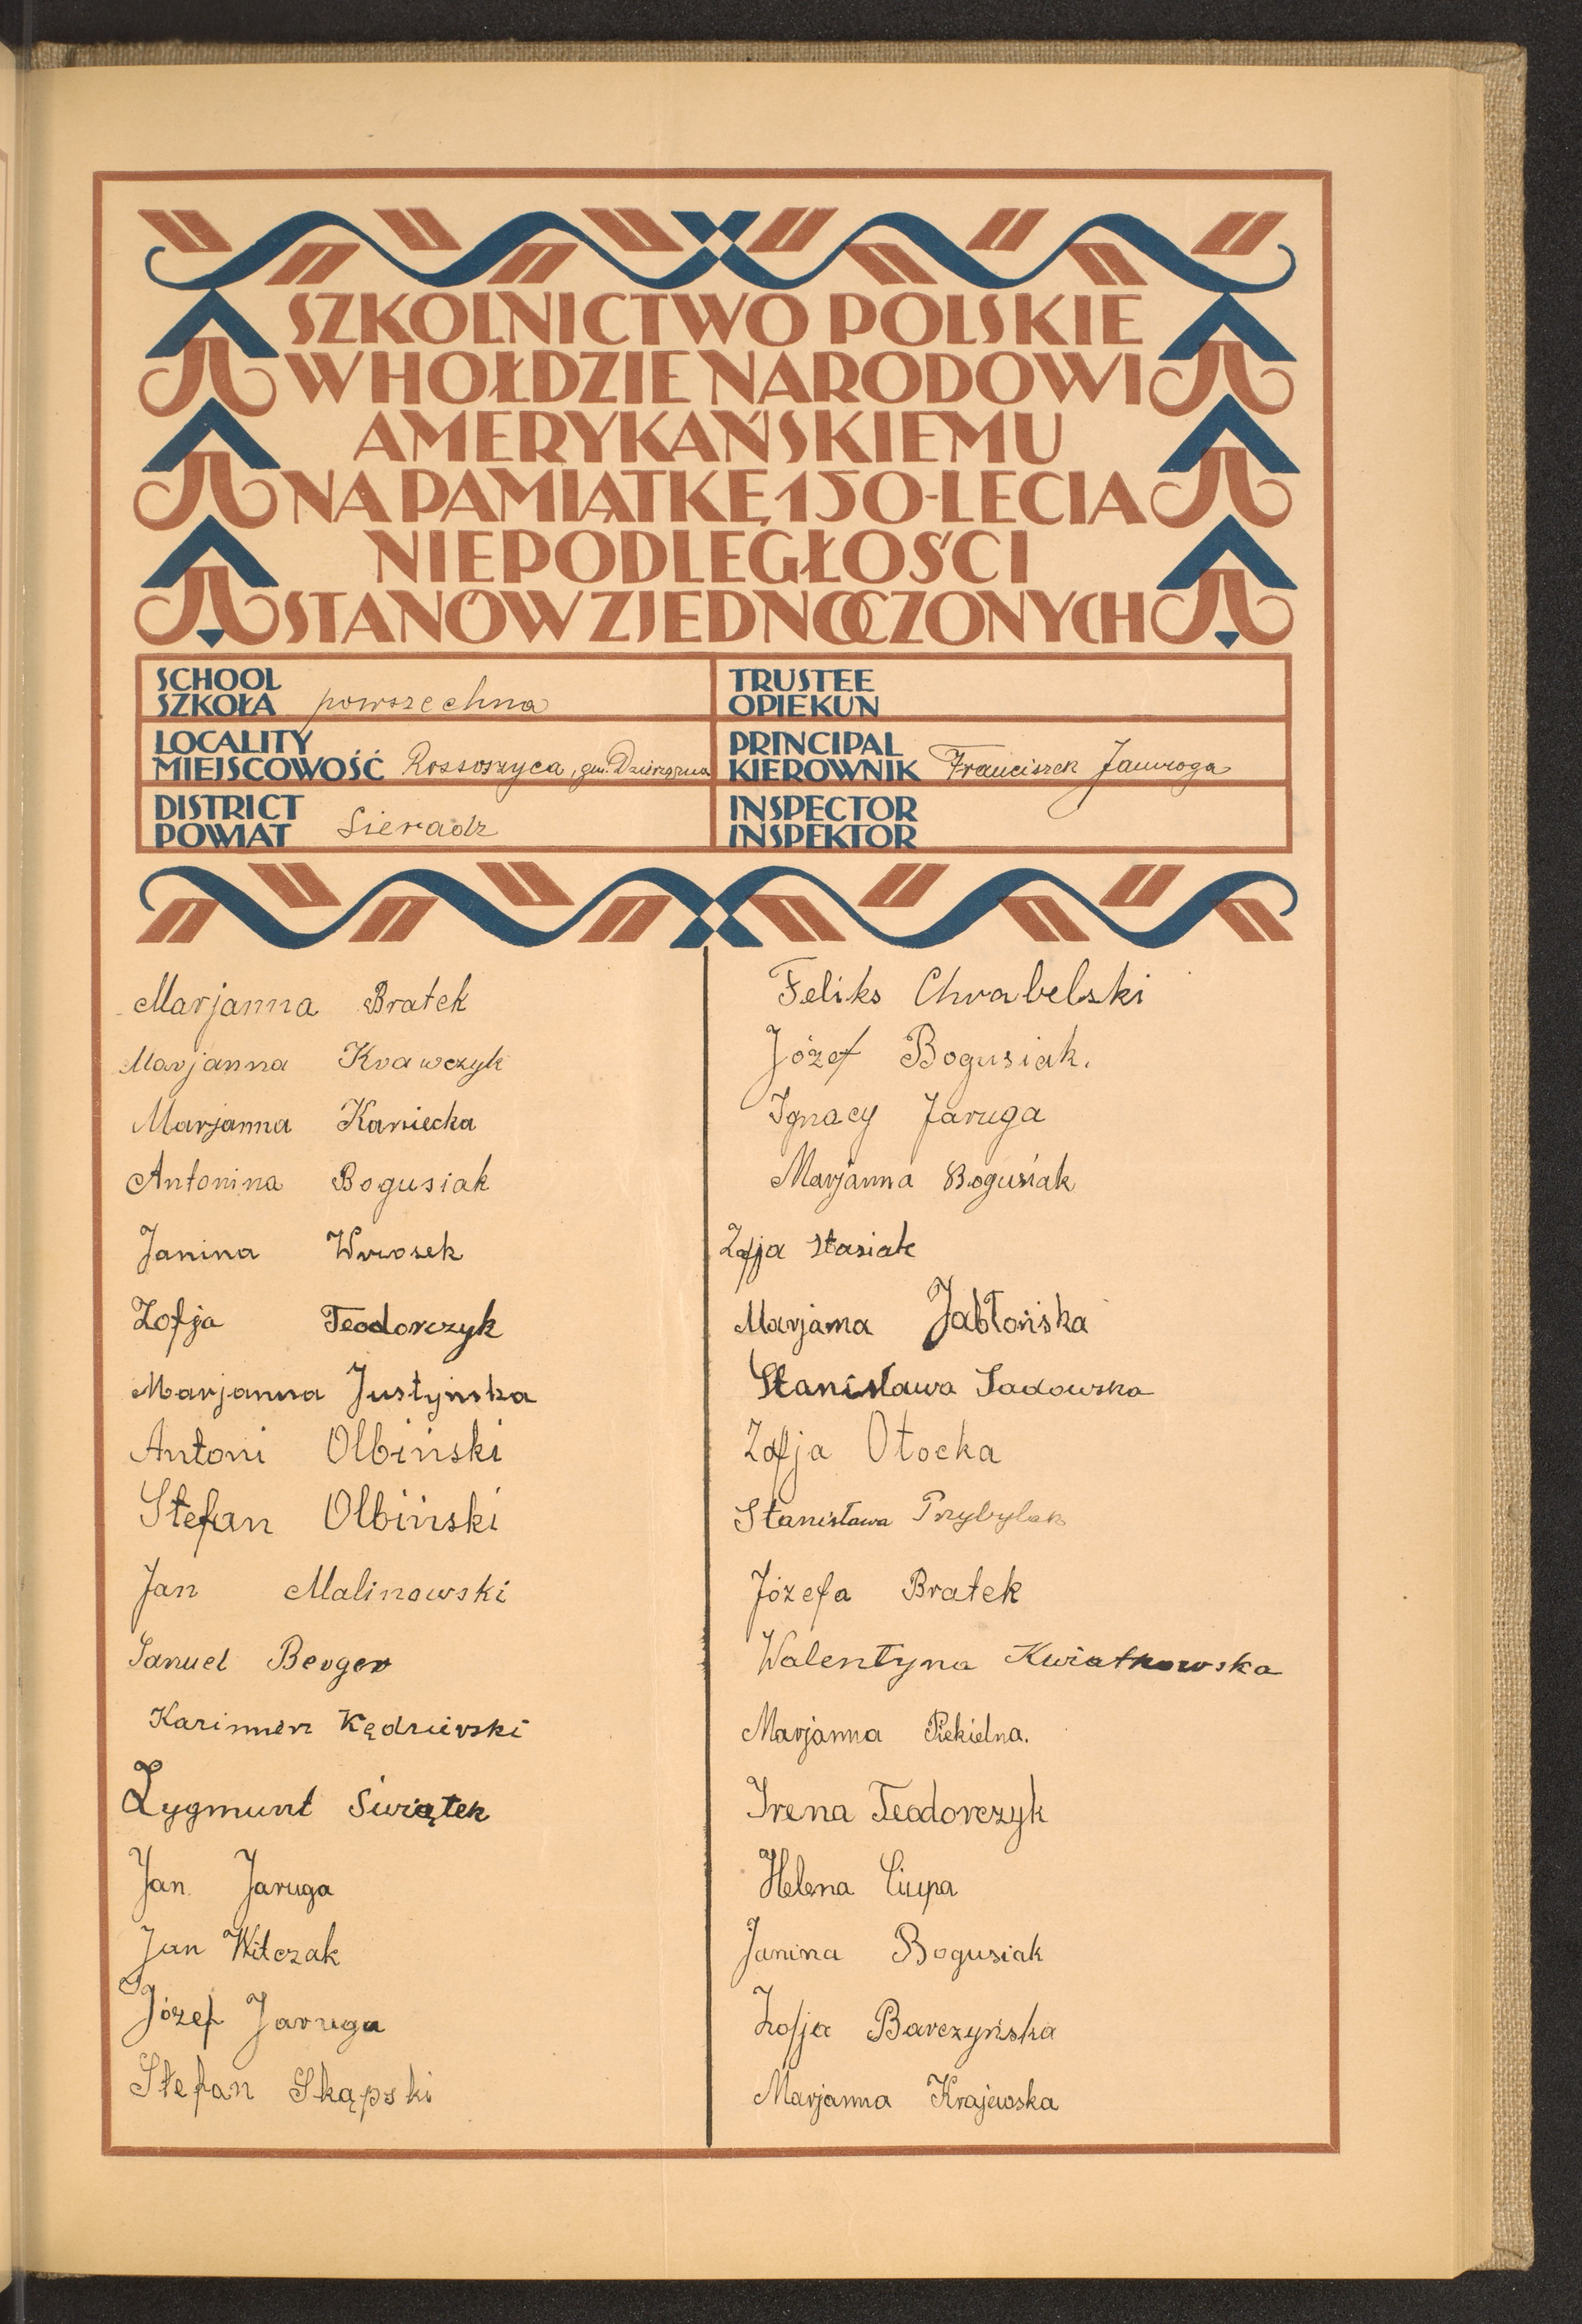 SZKOLNICTWO POLSKIE
W HOŁDZIE NARODOWI
AMERYKAŃSKIEMU
NA PAMIĄTKĘ 150-LECIA
NIEPODLEGŁOŚCI
STANÓW ZJEDNOCZONYCH
SCHOOL
SZKOŁA powszechna
LOCALITY
MIEJSCOWOŚĆ Rossoszyca, gm. Dzierzązna
DISTRICT
POWIAT Sieradz
TRUSTEE
OPIEKUN
PRINCIPAL
KIEROWNIK Franciszek Jamroga
INSPECTOR
INSPEKTOR
Marjanna Bratek
Marjanna Krawczyk
Marjanna Kaniecka
Antonina Bogusiak
Janina Wrosek
Zofja Teodorczyk
Marjanna Justyńska
Antoni Olbiński
Stefan Olbiński
Jan Malinowski
Samuel Berger
Kazimierz Kędzierski
Zygmunt Świątek
Jan Jaruga
Jan Witczak
Józef Jaruga
Stefan Skąpski
Feliks Chrabelski
Józef Bogusiak.
Ignacy Jaruga
Marjanna Bogusiak
Zofja Stasiak
Marjanna Jabłońska
Stanisława Sadowska
Zofja Otocka
Stanisława Przybylak
Józefa Bratek
Walentyna Kwiatkowska
Marjanna Piekielna.
Irena Teodorczyk
Helena Ciupa
Janina Bogusiak
Zofja Barczyńska
Marjanna Krajewska